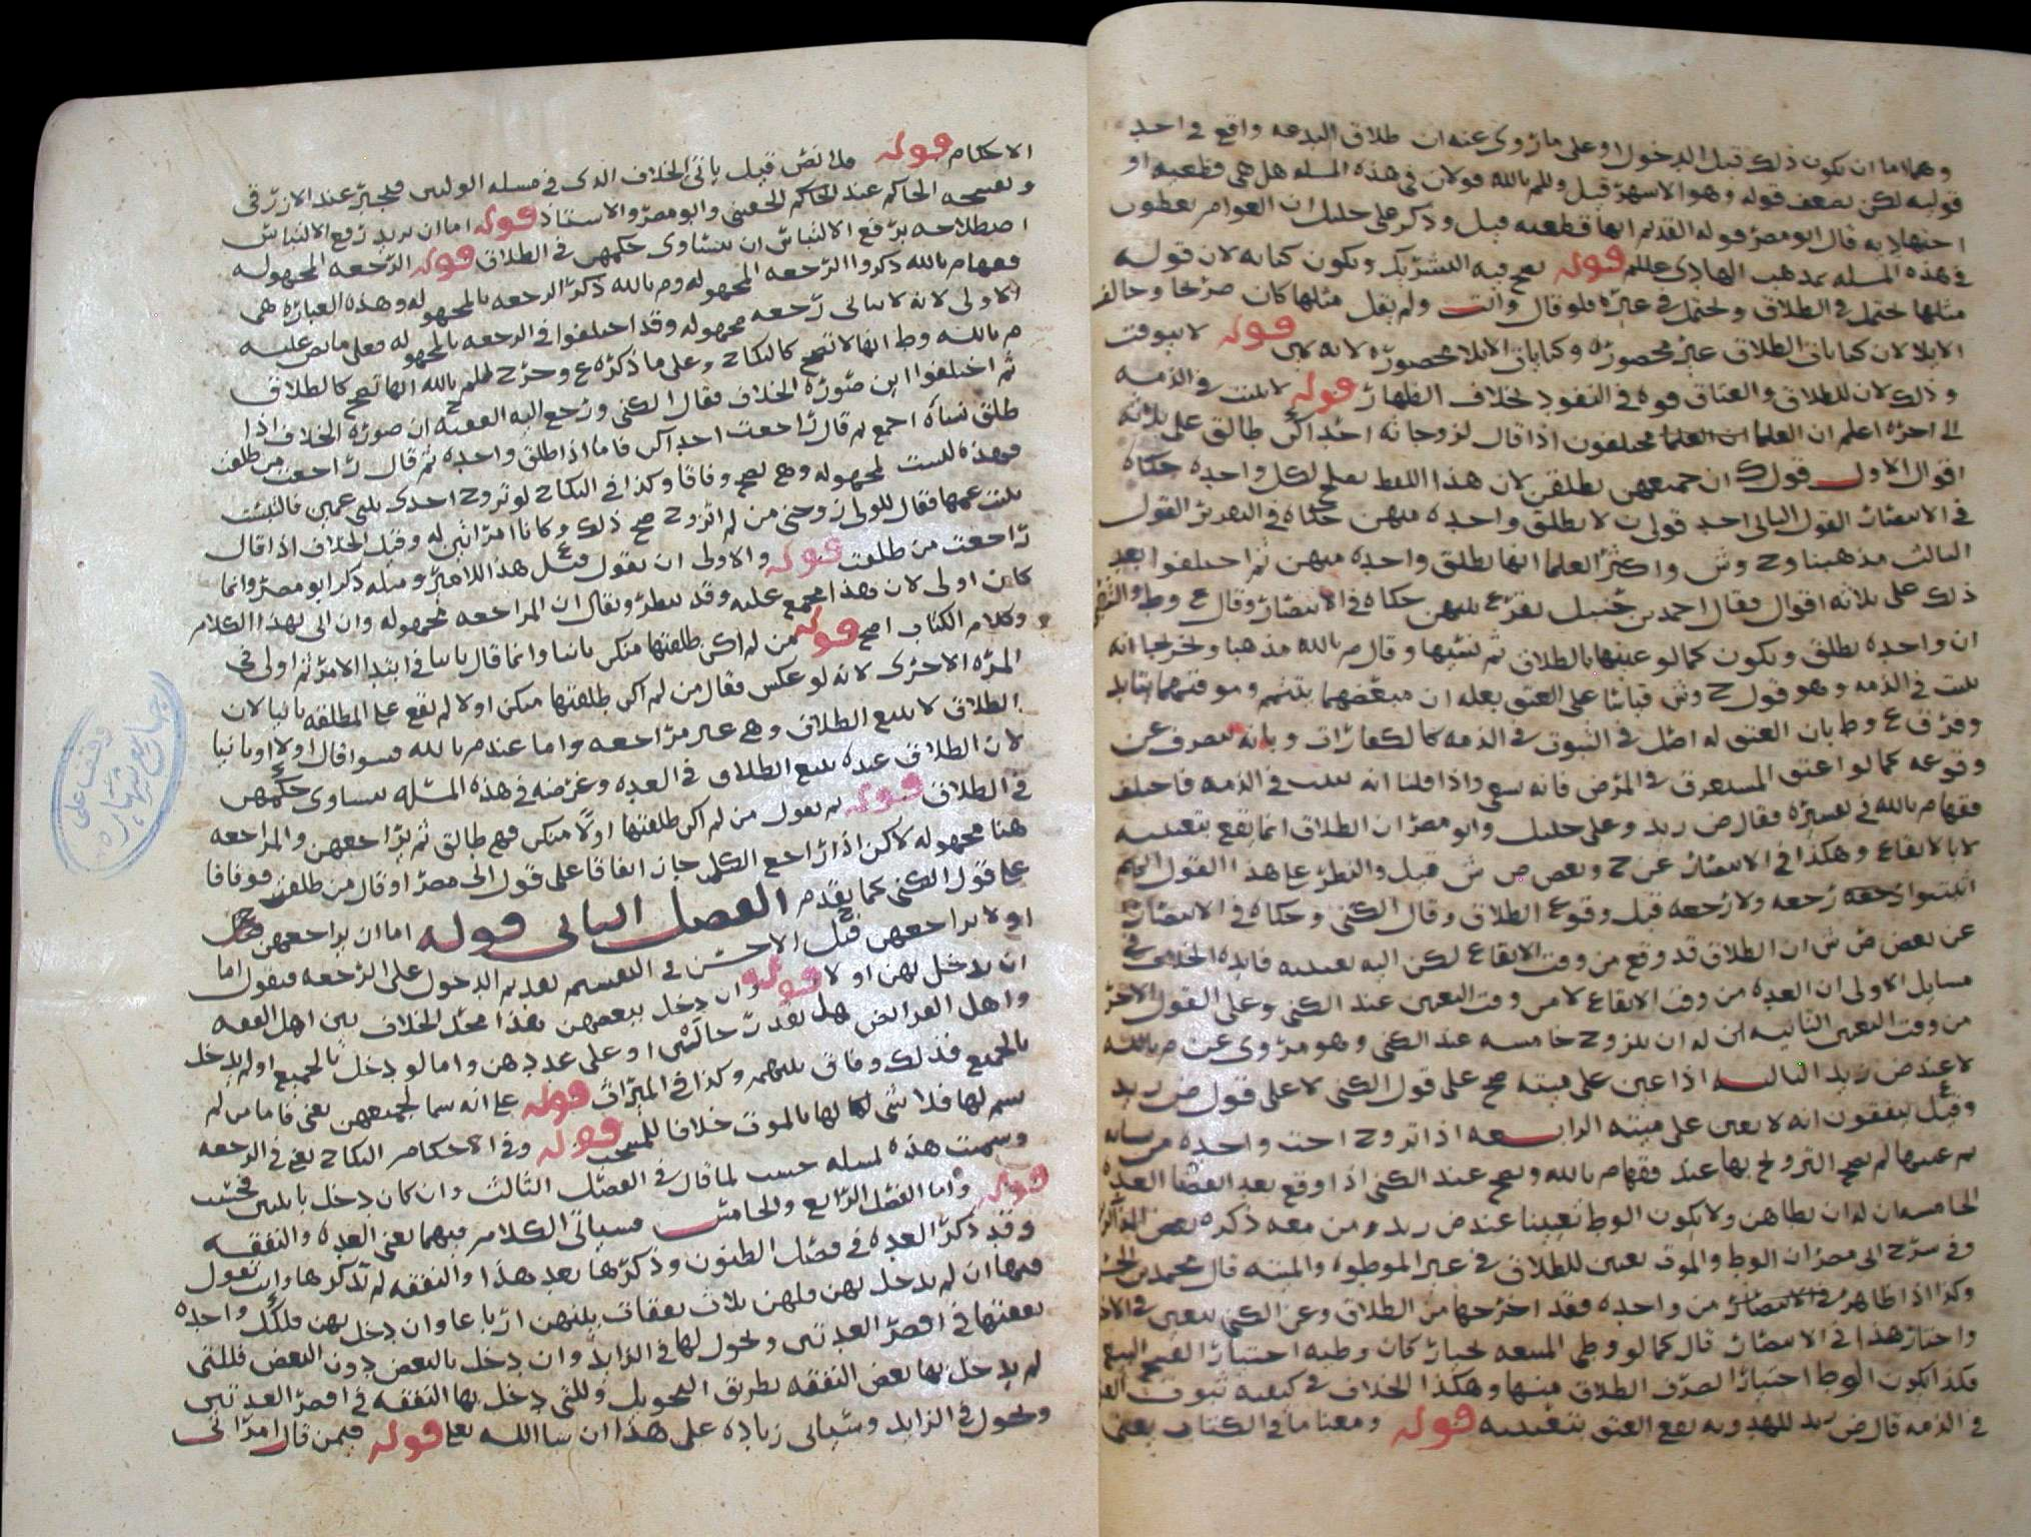 وهما اما ان يكون ذلك قبل الدخول او على ما روى عنه ان طلاق البدعه واقع في احد
قوليه لكن يضعف قوله وهو الاشهر قيل وللم بالله قولان في هذه المسله هل هي قطعيه او
اجتهاديه قال ابو مضر قوله القديم انها قطعيه قيل وذكر على خليل ان العوام يعطون
في هذه المسله بمذهب الهادي عللم قوله يصح فيه التشريك ويكون كنايه لان قوله
مثلها يحتمل في الطلاق ويحتمل في غيره فلو قال وانت ولم يقل مثلها كان صريحا وخالف
الايلا لان كنايات الطلاق غير محصوره وكنايات الايلا محصوره لانه قوله لا يتوقت
وذلك لان للطلاق والعتاق قوه في النفوذ بخلاف الظهار قوله لا يثبت في الذمه
الى اخره اعلم ان العلما مختلفون اذا قال لزوجاته احداكن طالق على ثلاثه
اقوال الاول قول ك ان جميعهن يطلقن لان هذا اللفظ يصلح لكل واحده حكاه
في الانتصار القول الثاني احد قولي لا يطلق واحده منهن حكاه في التقرير القول
الثالث مذهبنا وح وش واكثر العلما انها يطلق واحده منهن ثم اختلفوا بعد
ذلك على ثلاثه اقوال فقال احمد بن حنبل يقرع بينهن حكاه في الانتصار وقال ع وط
ان واحده تطلق ويكون كما لو عينها بالطلاق ثم نسيها وقال م بالله مذهبا وتخريجا انه
يثبت في الذمه وهو قول ح وش قياسا على العتق بعله ان
وفرق ع وط بان العتق له اصل في الثبوت في الذمه كالكفارات وبانه
وقوعه كما لو اعتق المستغرق في المرض فانه يسعى واذا قلنا انه يثبت في الذمه فاختلف
فقها م بالله في تفسيره فقال ض زيد وعلى خليل وابو مضر ان الطلاق انما يقع بتعيينه
لا بالايقاع وهكذا في الانتصار عن ح وبعض ص ش قيل والنظر على هذا القول
اثبتوا رجعه ولا رجعه قبل وقوع الطلاق وقال الكني وحكاه في الانتصار
عن بعض ص ش ان الطلاق قد وقع من وقت الايقاع لكن اليه تعيينه فايده الخلاف في
مسايل الاولى ان العده من وقت الايقاع لا من وقت التعيين عند الكني وعلى القول الاخر
من وقت التعيين الثانيه ان له ان يتزوج خامسه عند الكني وهو مروى عن م بالله
لا عند ض زيد الثالثه اذا عين على ميته صح على قول الكني لا على قول ض زيد
وقيل يتفقون انه لا يعين على ميته الرابعه اذا تزوج اخت واحده من نسائه
ثم عينها لم يصح التزويج بها عند فقها م بالله ويصح عند الكني اذا وقع بعد انقضا العده
الخامسه ان له ان يطاهن ولا يكون الوطي تعيينا عند ض زيد ومن معه ذكره بعض
وفي شرح ابي مضر ان الوطي والموت تعيين للطلاق في غير الموطوه والميته قال محمد بن
وكذا اذا ظاهر من واحده فقد اخرجها من الطلاق وعن الكني يتعين
واختار هذا في الانتصار قال كما لو وطي المبيعه بخيار كان وطيه اختيارا
فكذا يكون الوطي اختيارا لصرف الطلاق عنها وهكذا الخلاف في كيفيه ثبوت
في الذمه قال ض زيد للمهدويه يقع العتق بتعيينه قوله ومعنا ما في الكتاب يعني
الاحكام قوله فلا نص قيل ياتي الخلاف الذي في مسله الوليين فيجبر عند الازرقي
وبفسخه الحاكم عند الحاكم الحقيني وابو مضر والاستاذ قوله اما ان يريد رفع الالتباس
اصطلاحه برفع الالتباس ان يتساوى حكمهن في الطلاق قوله الرجعه المجهوله
فقها م بالله ذكروا الرجعه المجهوله وم بالله ذكر الرجعه بالمجهوله وهذه العباره هي
الاولى لانه لا يتاتى رجعه مجهوله وقد اختلفوا في الرجعه بالمجهوله فعلى ما نص عليه
م بالله وط انها لا تصح كالنكاح وعلى ما ذكره ع وخرج للم بالله انها تصح كالطلاق
ثم اختلفوا اين صوره الخلاف فقال الكني ورجع اليه الفقيه ح ان صوره الخلاف اذا
طلق نساه اجمع ثم قال راجعت احداكن فاما اذا طلق واحده ثم قال راجعت من طلقت
فهذه ليست بمجهوله وهي تصح وفاقا وكذا في النكاح لو تزوج احدى بنتي عمين فالتبست
بنت عمها فقال للولي زوجني من لم اتزوج صح ذلك وكانا امراتين له وقيل الخلاف اذا قال
راجعت من طلقت قوله والاولى ان يقول قبل هذا اللامير ومثله ذكر ابو مضر وانما
كان اولى لان هذا مجمع عليه وقد ينظر ويقال ان المراجعه مجهوله وان اتى بهذا الكلام
وكلام الكتاب اصح قوله من لم اكن طلقتها منكن ثانيا وانما قال ثانيا في ابتدا الامر ثم اولى في
المره الاخرى لانه لو عكس فقال من لم اكن طلقتها منكن اولا لم يقع على المطلقه ثانيا لان
الطلاق لا يتبع الطلاق وهي غير مراجعه واما عند م بالله فسوا قال اولا او ثانيا
لان الطلاق عنده يتبع الطلاق في العده وغرضه في هذه المسله يتساوى حكمهن
في الطلاق قوله ثم يقول من لم اكن طلقتها اولا منكن فهي طالق ثم يراجعهن والمراجعه
هنا مجهوله لكن اذا راجع الكل جاز اتفاقا على قول ابي مضر او قال من طلقت فوفاقا
على قول الكني كما تقدم الفصل الثاني قوله اما ان يراجعهن
او لا يراجعهن قيل ح الاحسن في التقسيم تقديم الدخول على الرجعه فيقول اما
ان يدخل بهن او لا قوله وان دخل ببعضهن هذا محل الخلاف بين اهل الفقه
واهل الفرايض هل يقدر حالتين او على عددهن واما لو دخل بالجميع او لم يدخل
بالجميع فذلك وفاق بينهم وكذا في الميراث قوله على انه سما لجميعهن يعني فاما من لم
يسم لها فلا شي لها بالموت خلافا قوله وفي الاحكام النكاح يعني في الرجعه
وسميت هذه مسله حسب لما قال في الفصل الثالث وان كان دخل باثنتين فحسب
قوله واما الفصل الرابع والخامس فسياتي الكلام فيهما يعني العده والنفقه
وقد ذكر العده في فصل الظنون وذكرها بعد هذا والنفقه لم يذكرها وانت تقول
فيها ان لم يدخل بهن فلهن ثلاث نفقات بينهن ارباعا وان دخل بهن فلكل واحده
نفقتها في اقصر العدتين ويحول لها في الزايد وان دخل بالبعض دون البعض فللتي
لم يدخل بها بعض النفقه بطريق التحويل وللتي دخل بها النفقه في اقصر العدتين
ويحول في الزايد وسياتي زياده على هذا ان شا الله تعلى قوله فيمن قال امراتي
وقف على